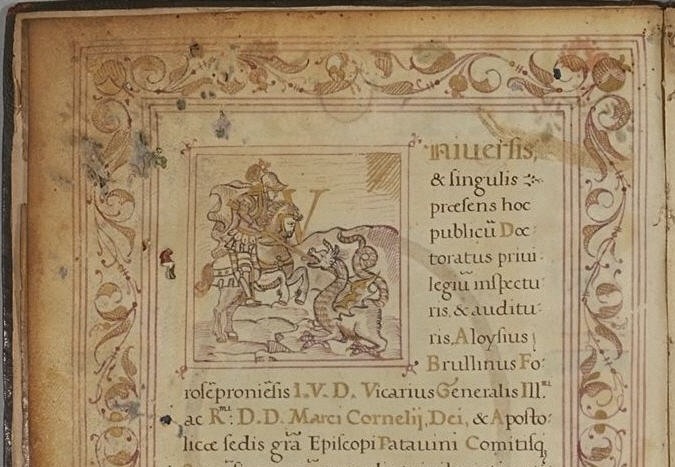 Vniuersis,
& singulis
præsens hoc
publicũ Doc
toratus priui
legiũ inspectu
ris, & auditu
ris, Aloysius
Brullinus Fo
rosẽproniẽsis I. V. D. Vicarius Generalis Ill.mi
ac R.mi: D. D. Marci Cornelij, Dei, & Aposto
licæ sedis grã Episcopi Patauini Comitisq,